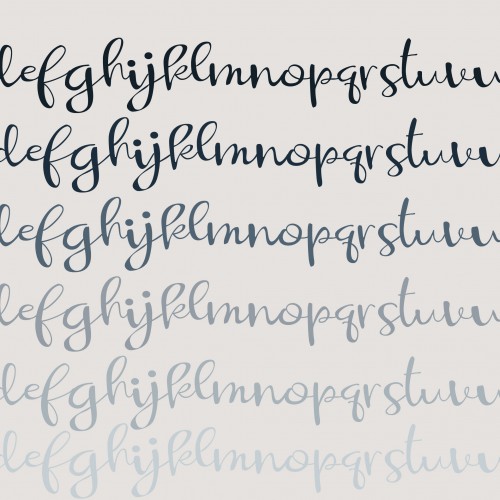 defghijklmnopqrstuvw
defghijklmnopqrstuvw
defghijklmnopqrstuvw
defghijklmnopqrstuvw
defghijklmnopqrstuvw
defghijklmnopqrstuvw